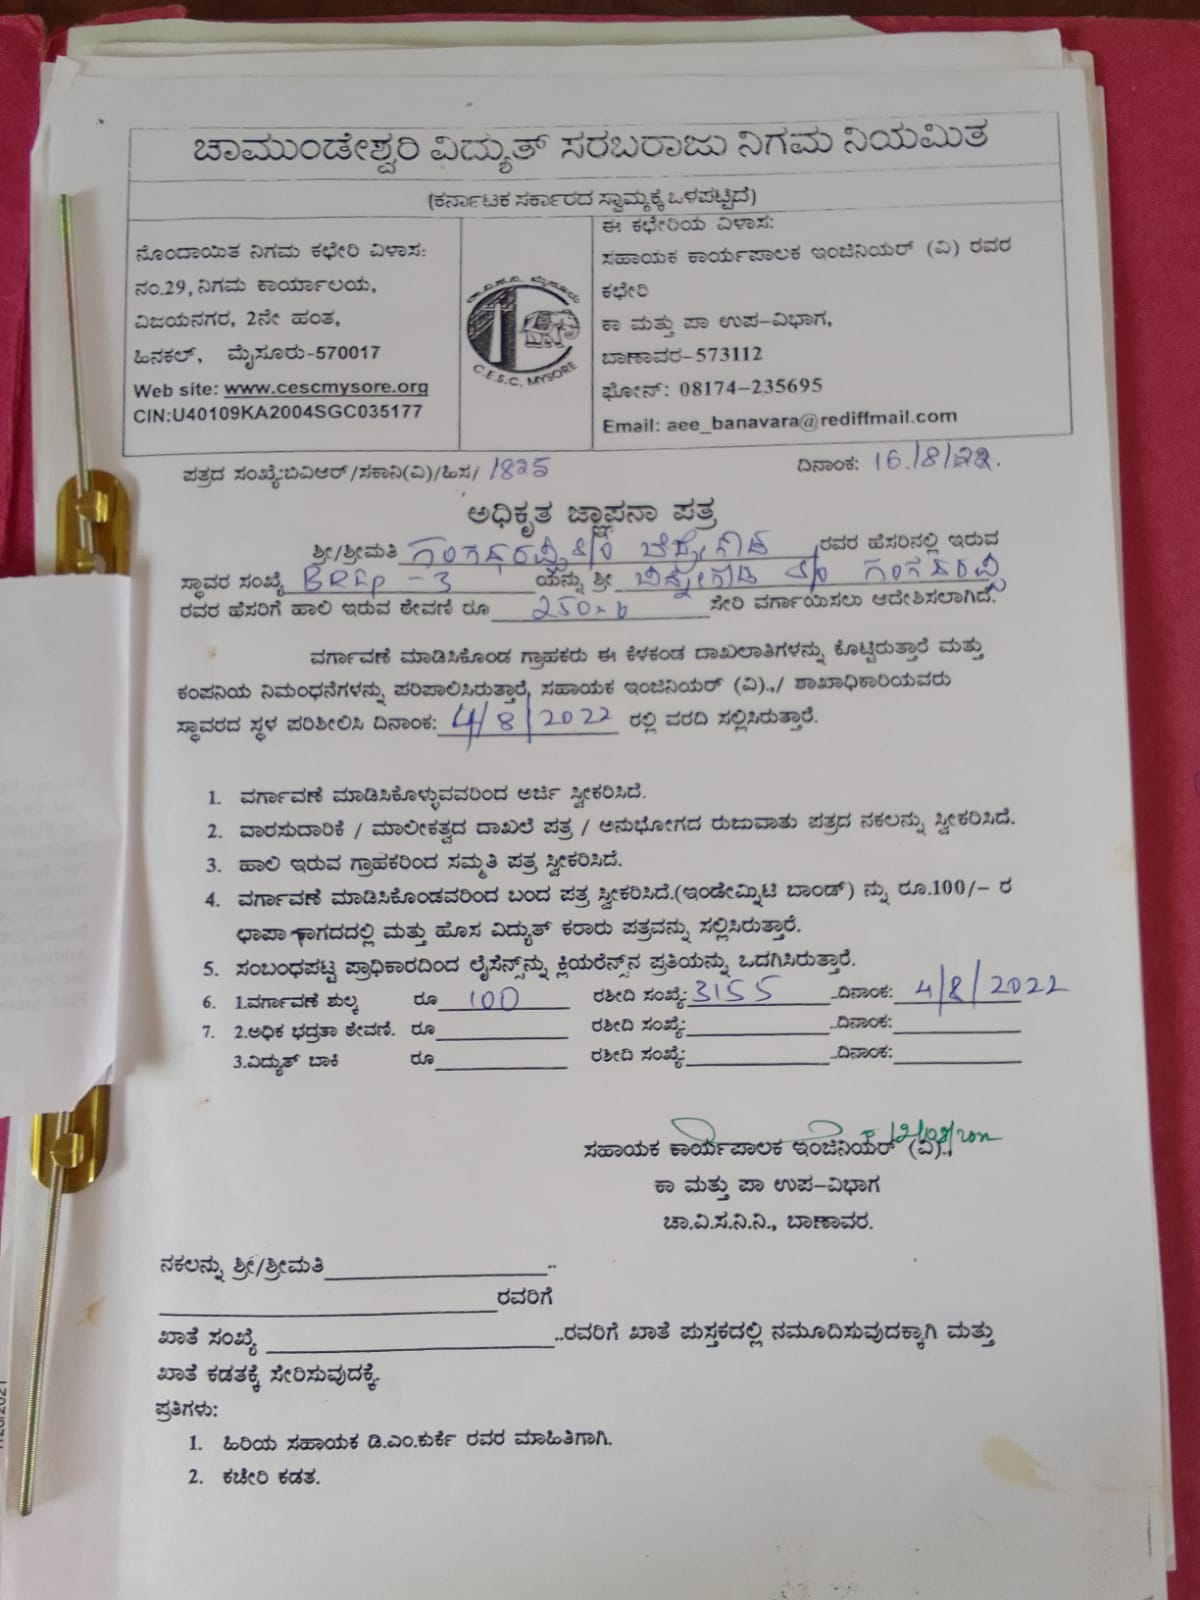 ಚಾಮುಂಡೇಶ್ವರಿ ವಿದ್ಯುತ್ ಸರಬರಾಜು ನಿಗಮ ನಿಯಮಿತ
(ಕರ್ನಾಟಕ ಸರ್ಕಾರದ ಸ್ವಾಮ್ಯಕ್ಕೆ ಒಳಪಟ್ಟಿದೆ)
ನೊಂದಾಯಿತ ನಿಗಮ ಕಛೇರಿ ವಿಳಾಸ:
ನಂ.29, ನಿಗಮ ಕಾರ್ಯಾಲಯ,
ವಿಜಯನಗರ, 2ನೇ ಹಂತ,
ಹಿನಕಲ್, ಮೈಸೂರು-570017
Web site: www.cescmysore.org
CIN:U40109KA2004SGC035177
C.E.S.C, MYSORE
ಈ ಕಛೇರಿಯ ವಿಳಾಸ:
ಸಹಾಯಕ ಕಾರ್ಯಪಾಲಕ ಇಂಜಿನಿಯರ್ (ವಿ) ರವರ
ಕಛೇರಿ
ಕಾ ಮತ್ತು ಪಾ ಉಪ-ವಿಭಾಗ,
ಬಾಣಾವರ-573112
ಫೋನ್: 08174-235695
Email: aee_banavara@rediffmail.com
ಪತ್ರದ ಸಂಖ್ಯೆ:ಬಿವಿಆರ್/ಸಕಾನಿ(ವಿ)/ಹಿಸ/ 1825 ದಿನಾಂಕ: 16/8/22.
ಅಧಿಕೃತ ಜ್ಞಾಪನಾ ಪತ್ರ
ಶ್ರೀ/ಶ್ರೀಮತಿ S/o ರವರ ಹೆಸರಿನಲ್ಲಿ ಇರುವ
ಸ್ಥಾವರ ಸಂಖ್ಯೆ -3 ಯನ್ನು ಶ್ರೀ S/o
ರವರ ಹೆಸರಿಗೆ ಹಾಲಿ ಇರುವ ಠೇವಣಿ ರೂ ಸೇರಿ ವರ್ಗಾಯಿಸಲು ಆದೇಶಿಸಲಾಗಿದೆ.
ವರ್ಗಾವಣೆ ಮಾಡಿಸಿಕೊಂಡ ಗ್ರಾಹಕರು ಈ ಕೆಳಕಂಡ ದಾಖಲಾತಿಗಳನ್ನು ಕೊಟ್ಟಿರುತ್ತಾರೆ ಮತ್ತು
ಕಂಪನಿಯ ನಿಮಂಧನೆಗಳನ್ನು ಪರಿಪಾಲಿಸಿರುತ್ತಾರೆ, ಸಹಾಯಕ ಇಂಜಿನಿಯರ್ (ವಿ).,/ ಶಾಖಾಧಿಕಾರಿಯವರು
ಸ್ಥಾವರದ ಸ್ಥಳ ಪರಿಶೀಲಿಸಿ ದಿನಾಂಕ: 4/8/2022 ರಲ್ಲಿ ವರದಿ ಸಲ್ಲಿಸಿರುತ್ತಾರೆ.
1. ವರ್ಗಾವಣೆ ಮಾಡಿಸಿಕೊಳ್ಳುವವರಿಂದ ಅರ್ಜಿ ಸ್ವೀಕರಿಸಿದೆ.
2. ವಾರಸುದಾರಿಕೆ / ಮಾಲೀಕತ್ವದ ದಾಖಲೆ ಪತ್ರ / ಅನುಭೋಗದ ರುಜುವಾತು ಪತ್ರದ ನಕಲನ್ನು ಸ್ವೀಕರಿಸಿದೆ.
3. ಹಾಲಿ ಇರುವ ಗ್ರಾಹಕರಿಂದ ಸಮ್ಮತಿ ಪತ್ರ ಸ್ವೀಕರಿಸಿದೆ.
4. ವರ್ಗಾವಣೆ ಮಾಡಿಸಿಕೊಂಡವರಿಂದ ಬಂದ ಪತ್ರ ಸ್ವೀಕರಿಸಿದೆ.(ಇಂಡೇಮ್ನಿಟಿ ಬಾಂಡ್) ನ್ನು ರೂ.100/- ರ
ಛಾಪಾ ಕಾಗದದಲ್ಲಿ ಮತ್ತು ಹೊಸ ವಿದ್ಯುತ್ ಕರಾರು ಪತ್ರವನ್ನು ಸಲ್ಲಿಸಿರುತ್ತಾರೆ.
5. ಸಂಬಂಧಪಟ್ಟ ಪ್ರಾಧಿಕಾರದಿಂದ ಲೈಸೆನ್ಸ್‌ನ್ನು ಕ್ಲಿಯರೆನ್ಸ್‌ನ ಪ್ರತಿಯನ್ನು ಒದಗಿಸಿರುತ್ತಾರೆ.
6. 1.ವರ್ಗಾವಣೆ ಶುಲ್ಕ ರೂ 100 ರಶೀದಿ ಸಂಖ್ಯೆ: 3155 ..ದಿನಾಂಕ: 4/8/2022
7. 2.ಅಧಿಕ ಭದ್ರತಾ ಠೇವಣಿ. ರೂ ರಶೀದಿ ಸಂಖ್ಯೆ: ..ದಿನಾಂಕ:
3.ವಿದ್ಯುತ್ ಬಾಕಿ ರೂ ರಶೀದಿ ಸಂಖ್ಯೆ: ..ದಿನಾಂಕ:
ಸಹಾಯಕ ಕಾರ್ಯಪಾಲಕ ಇಂಜಿನಿಯರ್ (ವಿ).,
ಕಾ ಮತ್ತು ಪಾ ಉಪ-ವಿಭಾಗ
ಚಾ.ವಿ.ಸ.ನಿ.ನಿ., ಬಾಣಾವರ.
ನಕಲನ್ನು ಶ್ರೀ/ಶ್ರೀಮತಿ ..
ರವರಿಗೆ
ಖಾತೆ ಸಂಖ್ಯೆ ..ರವರಿಗೆ ಖಾತೆ ಪುಸ್ತಕದಲ್ಲಿ ನಮೂದಿಸುವುದಕ್ಕಾಗಿ ಮತ್ತು
ಖಾತೆ ಕಡತಕ್ಕೆ ಸೇರಿಸುವುದಕ್ಕೆ.
ಪ್ರತಿಗಳು:
1. ಹಿರಿಯ ಸಹಾಯಕ ಡಿ.ಎಂ.ಕುರ್ಕೆ ರವರ ಮಾಹಿತಿಗಾಗಿ.
2. ಕಚೇರಿ ಕಡತ.